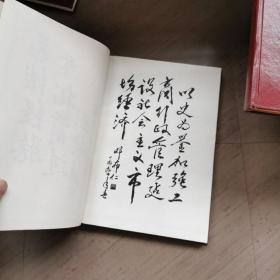 以史为鉴加强工
商行政管理建
设社会主义市
场经济